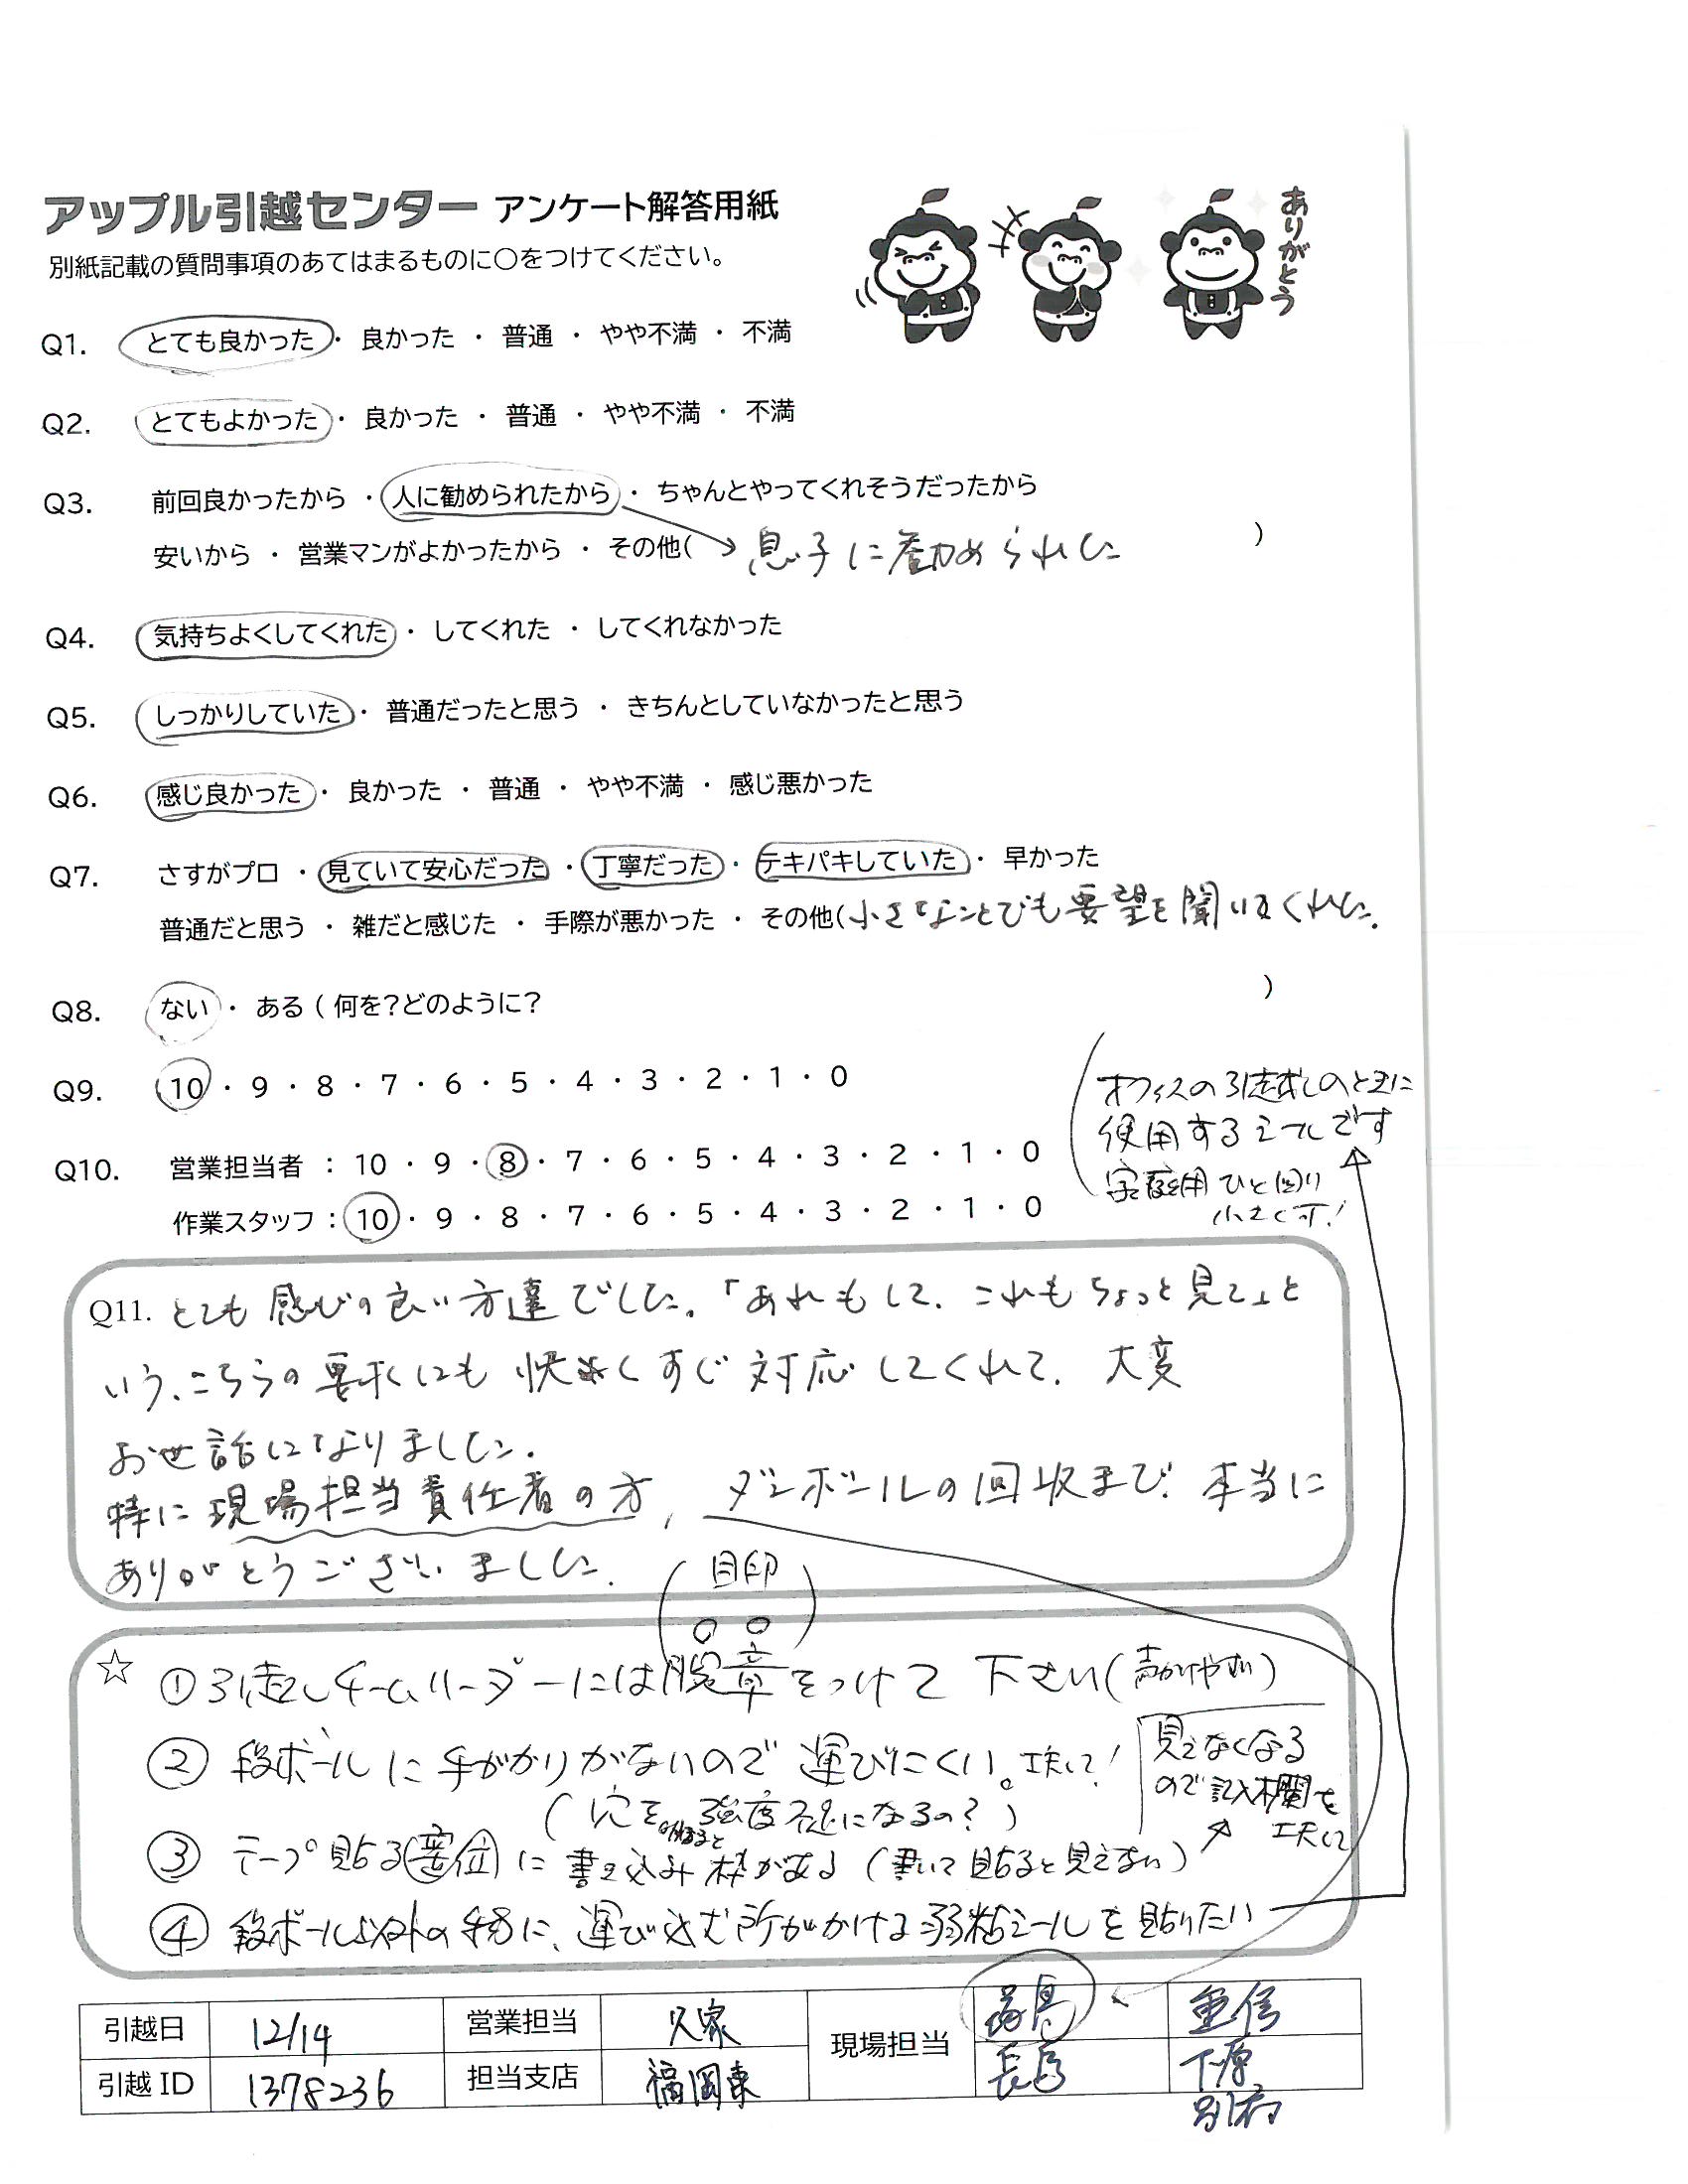 アップル引越センター アンケート解答用紙
ありがとう
別紙記載の質問事項のあてはまるものに○をつけてください。
Q1. とても良かった ・ 良かった ・ 普通 ・ やや不満 ・ 不満
Q2. とてもよかった ・ 良かった ・ 普通 ・ やや不満 ・ 不満
Q3. 前回良かったから ・ 人に勧められたから ・ ちゃんとやってくれそうだったから
安いから ・ 営業マンがよかったから ・ その他( 息子に勧められした )
Q4. 気持ちよくしてくれた ・ してくれた ・ してくれなかった
Q5. しっかりしていた ・ 普通だったと思う ・ きちんとしていなかったと思う
Q6. 感じ良かった ・ 良かった ・ 普通 ・ やや不満 ・ 感じ悪かった
Q7. さすがプロ ・ 見ていて安心だった ・ 丁寧だった ・ テキパキしていた ・ 早かった
普通だと思う ・ 雑だと感じた ・ 手際が悪かった ・ その他(小さなことでも要望を聞いてくれた。
)
Q8. ない ・ ある ( 何を?どのように?
Q9. 10 ・ 9 ・ 8 ・ 7 ・ 6 ・ 5 ・ 4 ・ 3 ・ 2 ・ 1 ・ 0
オフィスの引越しのときに
使用するシールです
家庭用ひと回り
小さく可!
Q10. 営業担当者 : 10 ・ 9 ・ 8 ・ 7 ・ 6 ・ 5 ・ 4 ・ 3 ・ 2 ・ 1 ・ 0
作業スタッフ : 10 ・ 9 ・ 8 ・ 7 ・ 6 ・ 5 ・ 4 ・ 3 ・ 2 ・ 1 ・ 0
Q11. とても感じの良い方達でした。「あれもして、これもちょっと見て」と
いう、こちらの要求にも快よくすぐ対応してくれて、大変
お世話になりました。
特に現場担当責任者の方、ダンボールの回収まで、本当に
ありがとうございました。
(目印)
☆ ①引越しチームリーダーには腕章をつけて下さい(声かけやすい)
② 段ボールに手がかりがないので運びにくい。工夫して!
(穴を開けると強度不足になるの?)
見えなくなる
ので記入欄を
工夫して
③ テープ貼る位に書き込み枠がある(書いて貼ると見えない)
④ 段ボール以外の物に、運び込む所がかける弱粘シールを貼りたい
引越日 12/14 営業担当 久家 現場担当 重信
引越ID 1378236 担当支店 福岡東 長尾 下原
別府